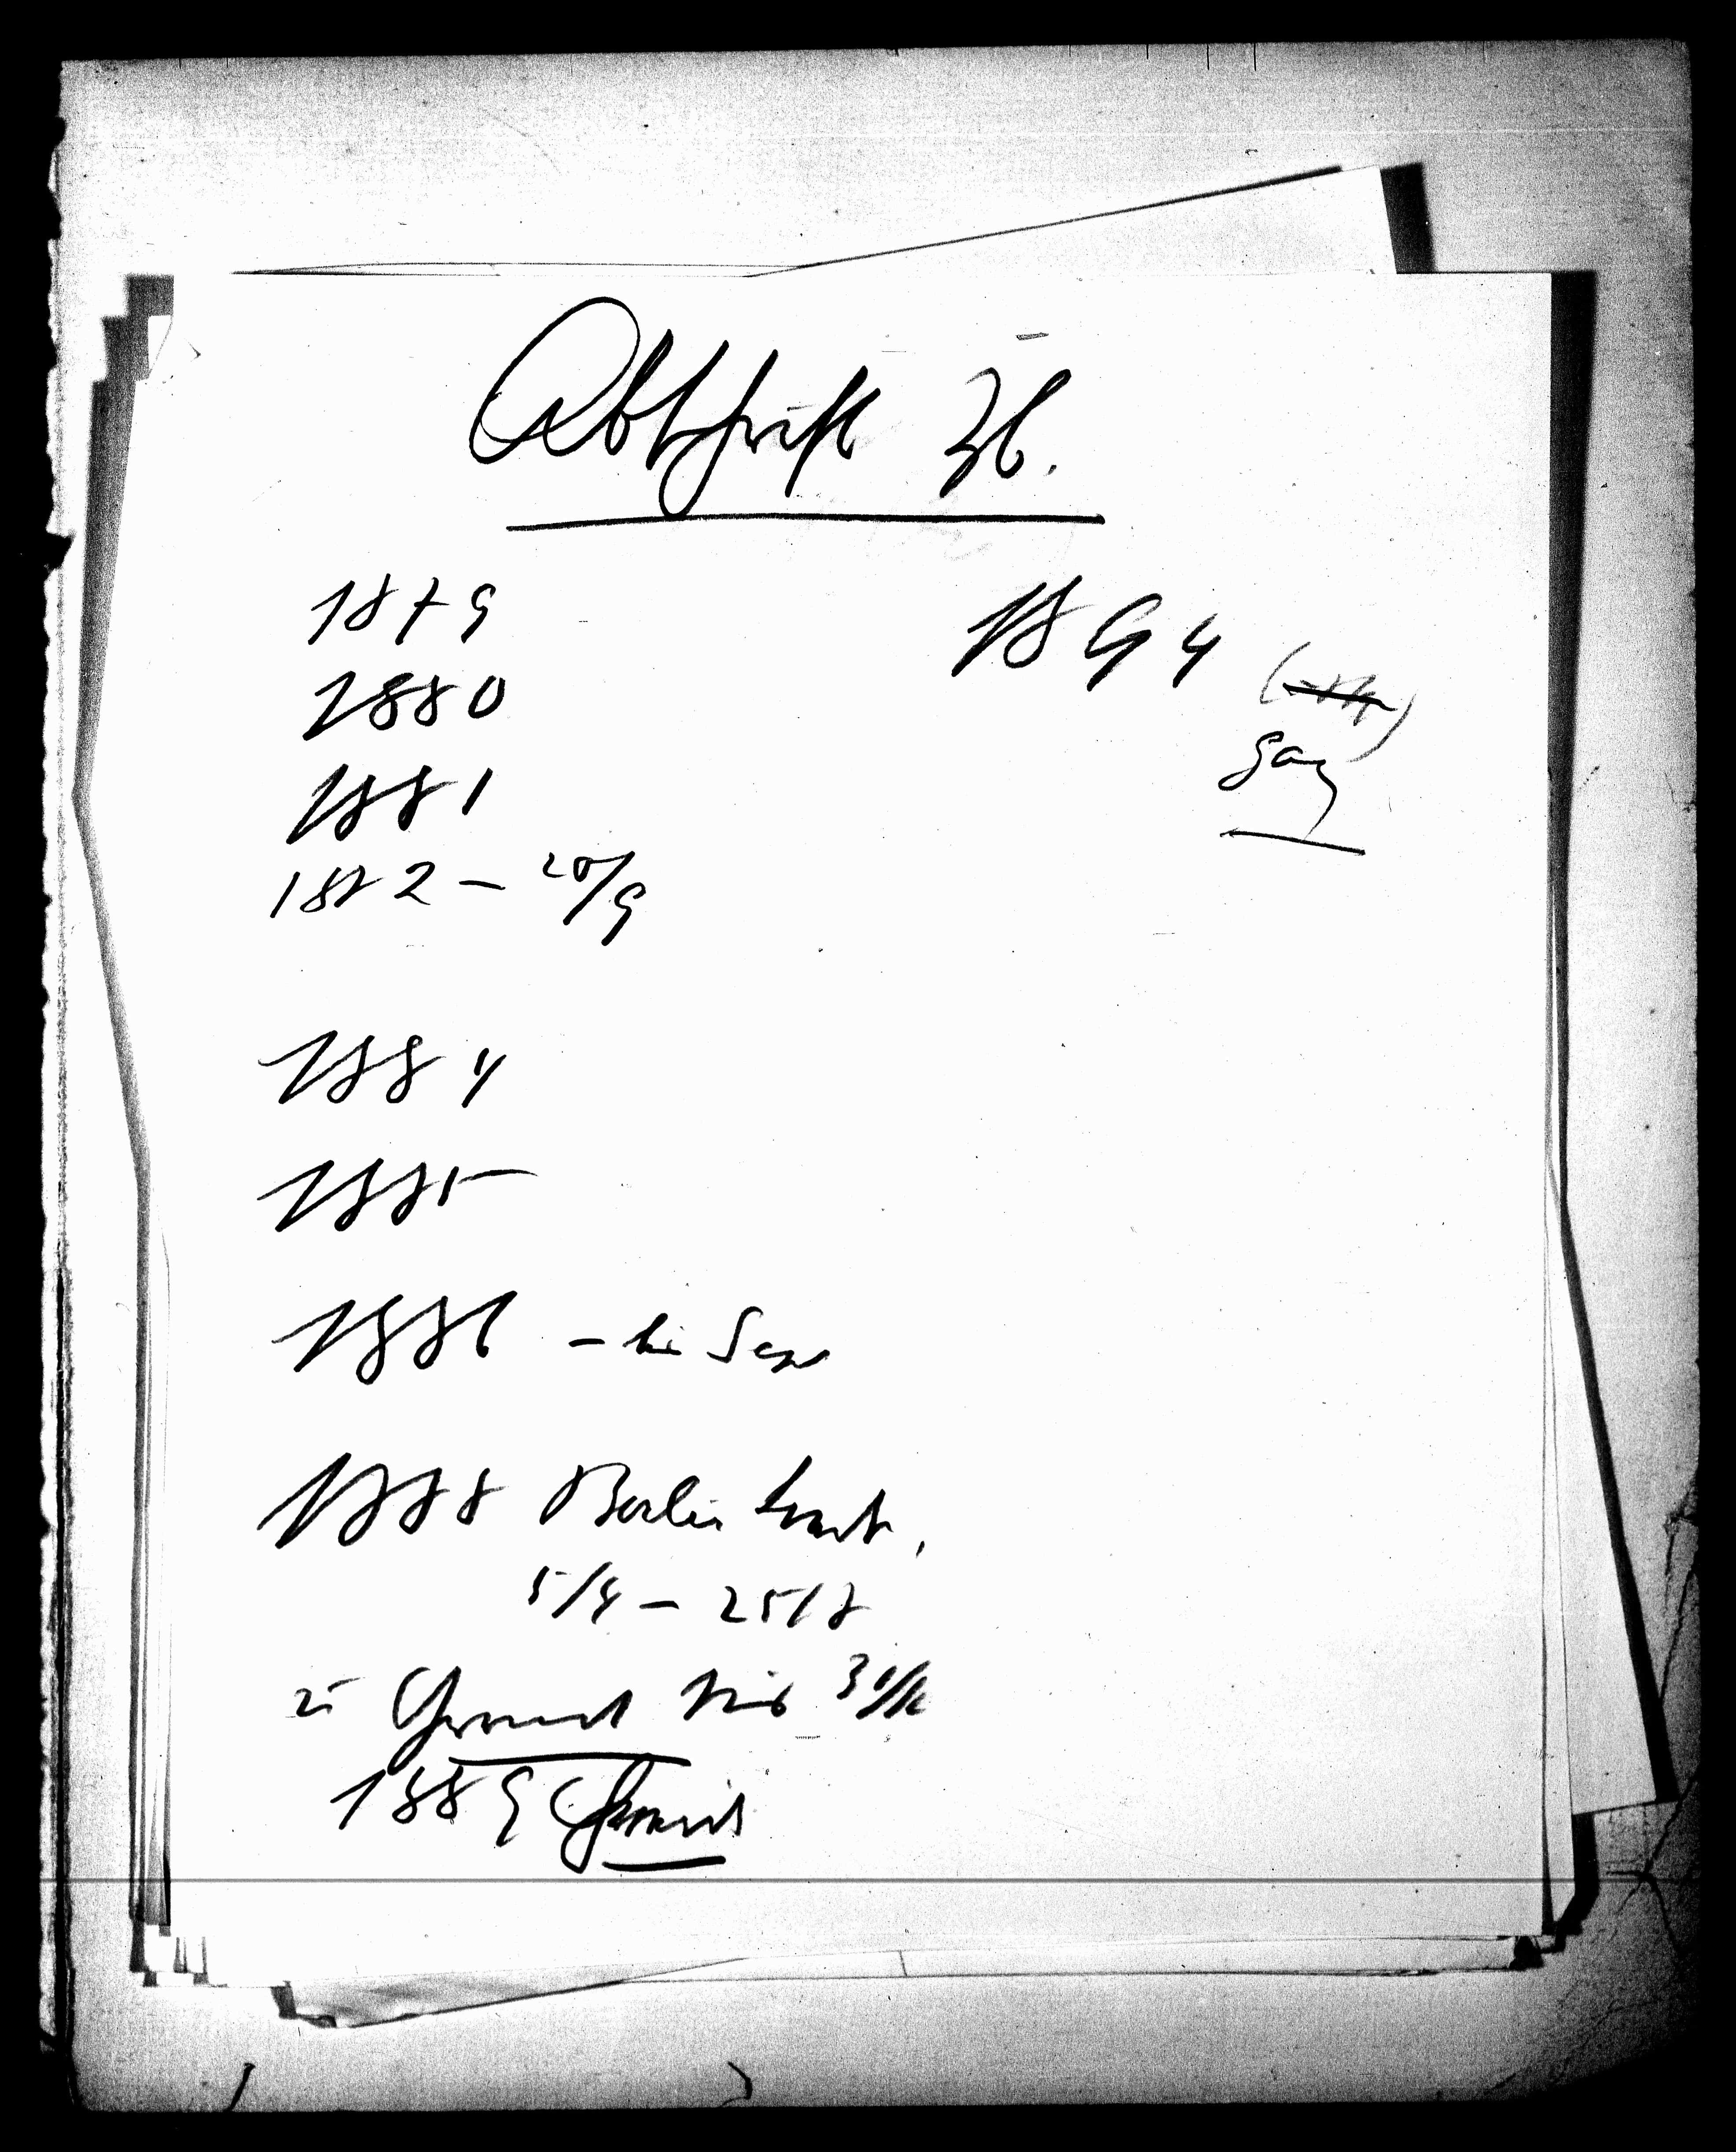 Abschrift Zb.
1879
1880
1881
1882 – 20/9
1884
1885
1886 – bis Sep
1888 Berlin
5/4 – 25/8
25
1889
1894
ganz